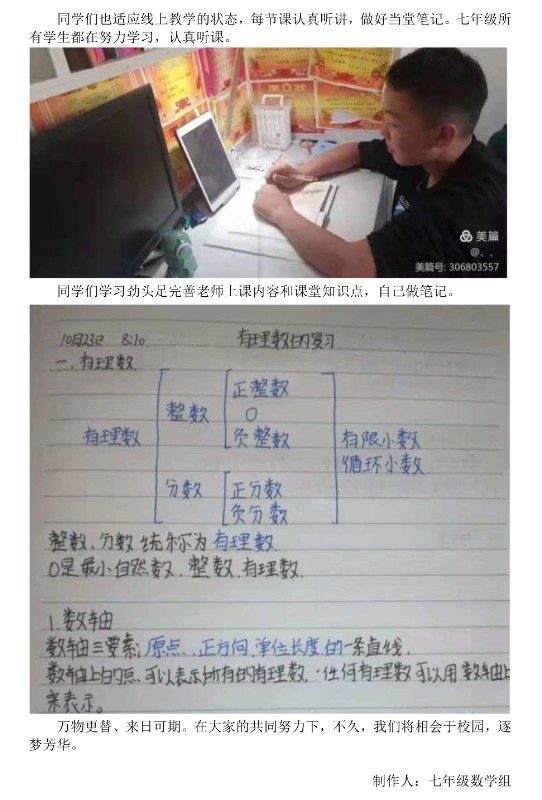 同学们也适应线上教学的状态，每节课认真听讲，做好当堂笔记。七年级所
有学生都在努力学习，认真听课。
美篇
@、、
美篇号: 306803557
同学们学习劲头足完善老师上课内容和课堂知识点，自己做笔记。
10月23日 8:10 有理数的复习
一.有理数.
正整数
整数 0
有理数 负整数 有限小数
循环小数
分数 正分数
负分数
整数、分数 统称为有理数.
0是最小自然数、整数、有理数.
1.数轴
数轴三要素：原点、正方向、单位长度的一条直线.
数轴上的点、可以表示所有的有理数，任何有理数可以用数轴上
来表示。
万物更替、来日可期。在大家的共同努力下，不久，我们将相会于校园，逐
梦芳华。
制作人：七年级数学组